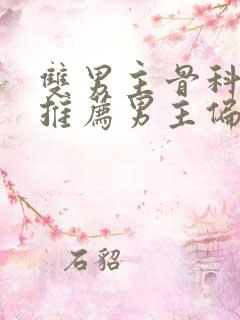 雙男主骨科
推薦男主偏
石貂